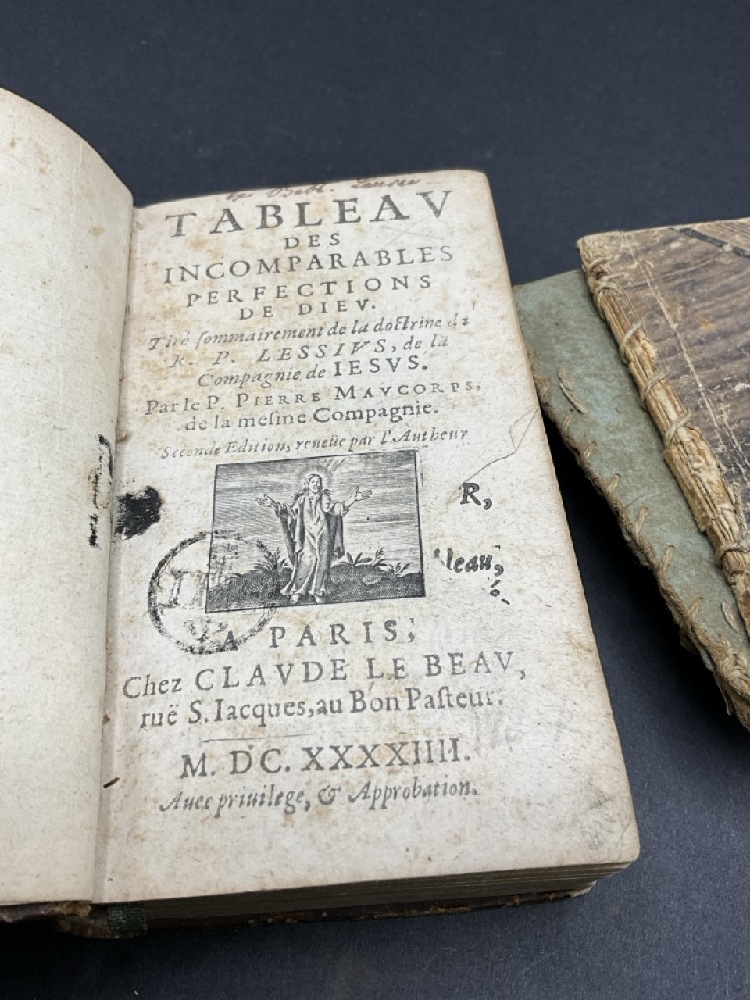 TABLEAV
DES
INCOMPARABLES
PERFECTIONS
DE DIEV.
Tiré sommairement de la doctrine du
R. P. LESSIVS, de la
Compagnie de IESVS.
Par le P. PIERRE MAVCORPS,
de la mesme Compagnie.
Seconde Edition, reueüe par l'Autheur
R,
leau,
A PARIS,
Chez CLAVDE LE BEAV,
ruë S. Iacques, au Bon Pasteur.
M. DC. XXXXIIII.
Auec priuilege, & Approbation.